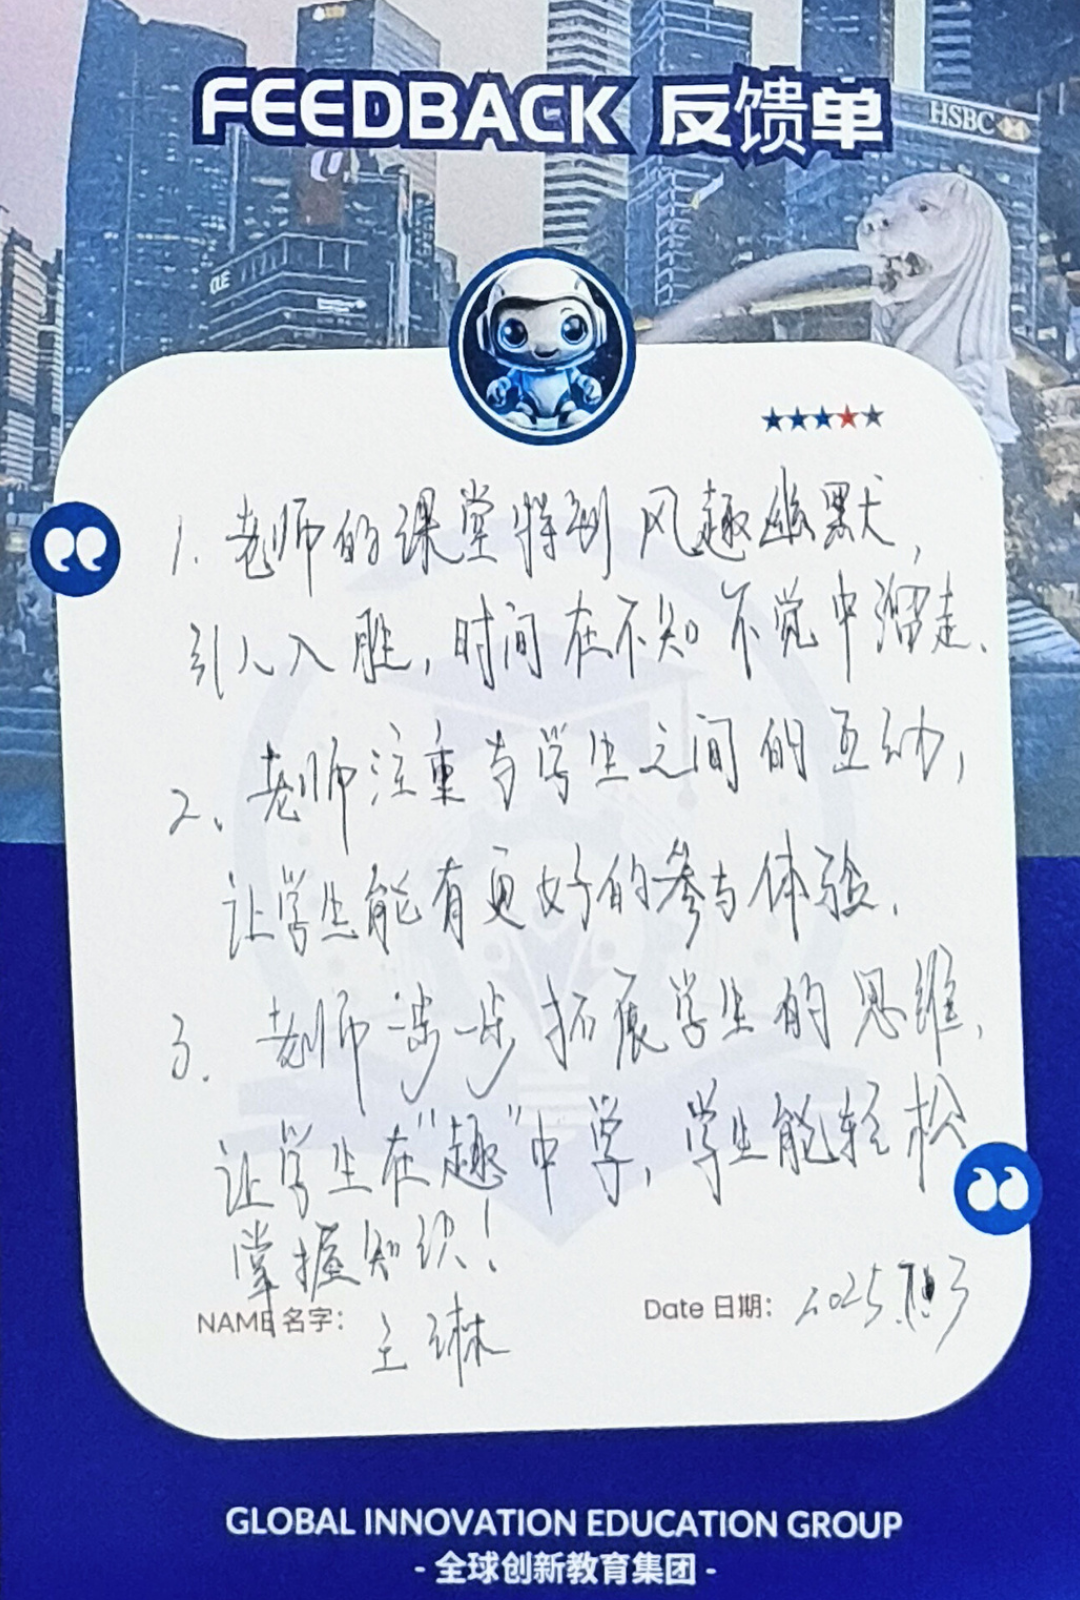 FEEDBACK 反馈单
HSBC
CLE
1. 老师的课堂特别风趣幽默，
引人入胜，时间在不知不觉中溜走、
2、老师注重与学生之间的互动，
让学生能有更好的参与体验.
3. 老师一步一步拓展学生的思维，
让学生在“趣”中学，学生能轻松
掌握知识！
NAME 名字： 王琳
Date 日期： 2025.
GLOBAL INNOVATION EDUCATION GROUP
- 全球创新教育集团 -